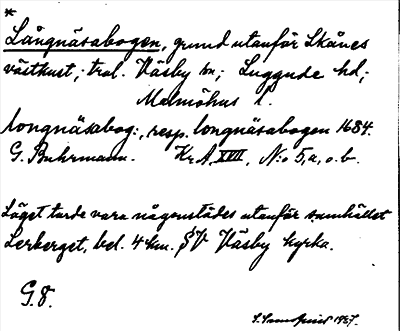 *
Långnäsabogen, grund utanför Skånes
västkust; trol. Väsby sn; Luggude hd;
Malmöhus l.
longnäsabog:, resp. longnäsabogen 1684.
G. Buhrmann. Kr. A. XVII, N:o 5, a, o. b.
Läget torde vara någonstädes utanför samhället
Lerberget, bel. 4 km. SV Väsby kyrka.
G. 8.
1927.